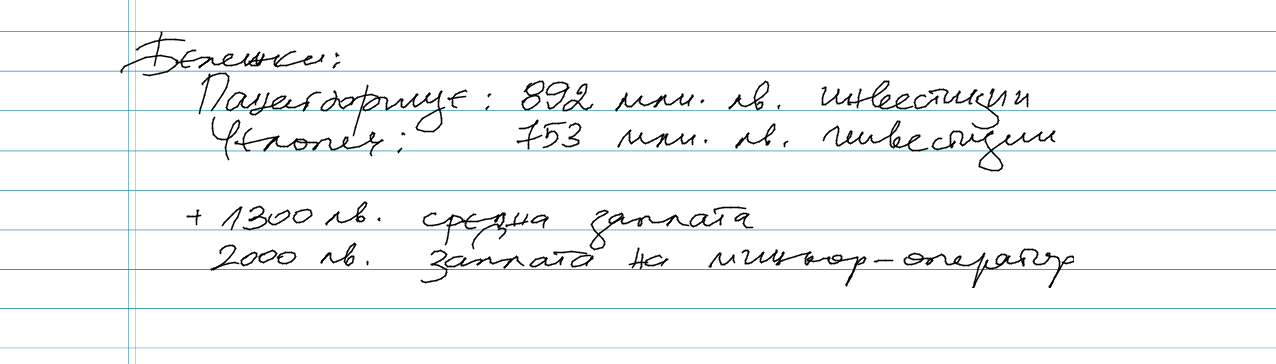 Бележки:
Панагюрище: 892 млн. лв. инвестиции
Челопеч: 753 млн. лв. инвестиции
+ 1300 лв. средна заплата
2000 лв. заплата на миньор-оператор